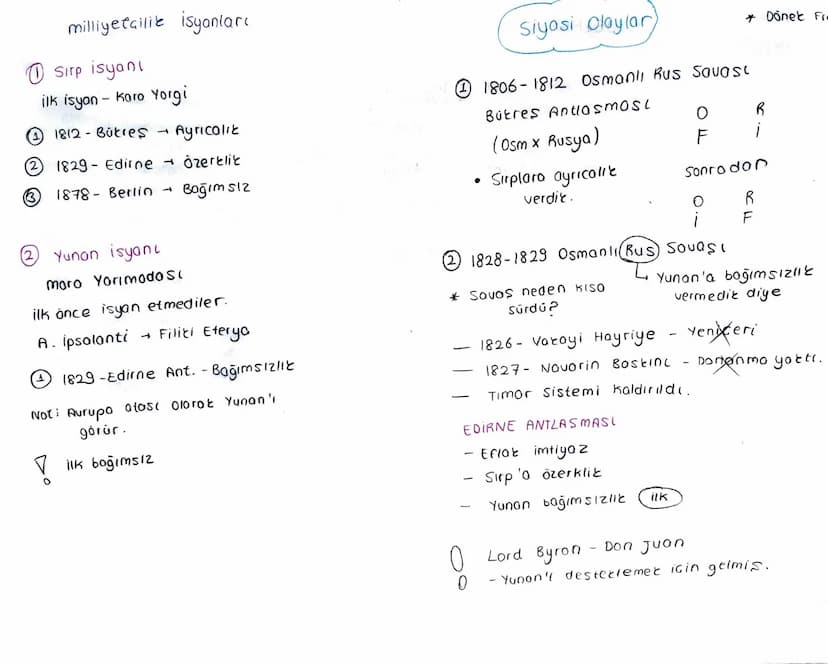 milliyetcilik isyanları
① Sırp isyanı
ilk isyan - Kara Yorgi
① 1812 - Bükreş → Ayrıcalık
② 1829 - Edirne → özerklik
③ 1878 - Berlin → Bağımsız
② Yunan isyanı
Mora Yarımadası
ilk önce isyan etmediler.
A. İpsalanti → Filiki Eterya
① 1829 - Edirne Ant. - Bağımsızlık
Not: Avrupa atası olarak Yunan'ı
görür.
! ilk bağımsız
Siyasi Olaylar
* Dönek
① 1806 - 1812 Osmanlı Rus Savası
Bükreş Antlasması
(Osm x Rusya)
O R
F İ
• Sırplara ayrıcalık
verdik.
sonradan
O R
İ F
② 1828 - 1829 Osmanlı Rus Savası
↳ Yunan'a bağımsızlık
vermedik diye
* Savaş neden kısa
sürdü?
— 1826 - Vakayi Hayriye - Yeniçeri
— 1827 - Navarin Baskını - Donanma yaktı.
— Tımar Sistemi kaldırıldı.
EDİRNE ANTLASMASI
- Eflak imtiyaz
- Sırp'a özerklik
- Yunan bağımsızlık ilk
! Lord Byron - Don Juan
- Yunan'ı desteklemek icin gelmiş.